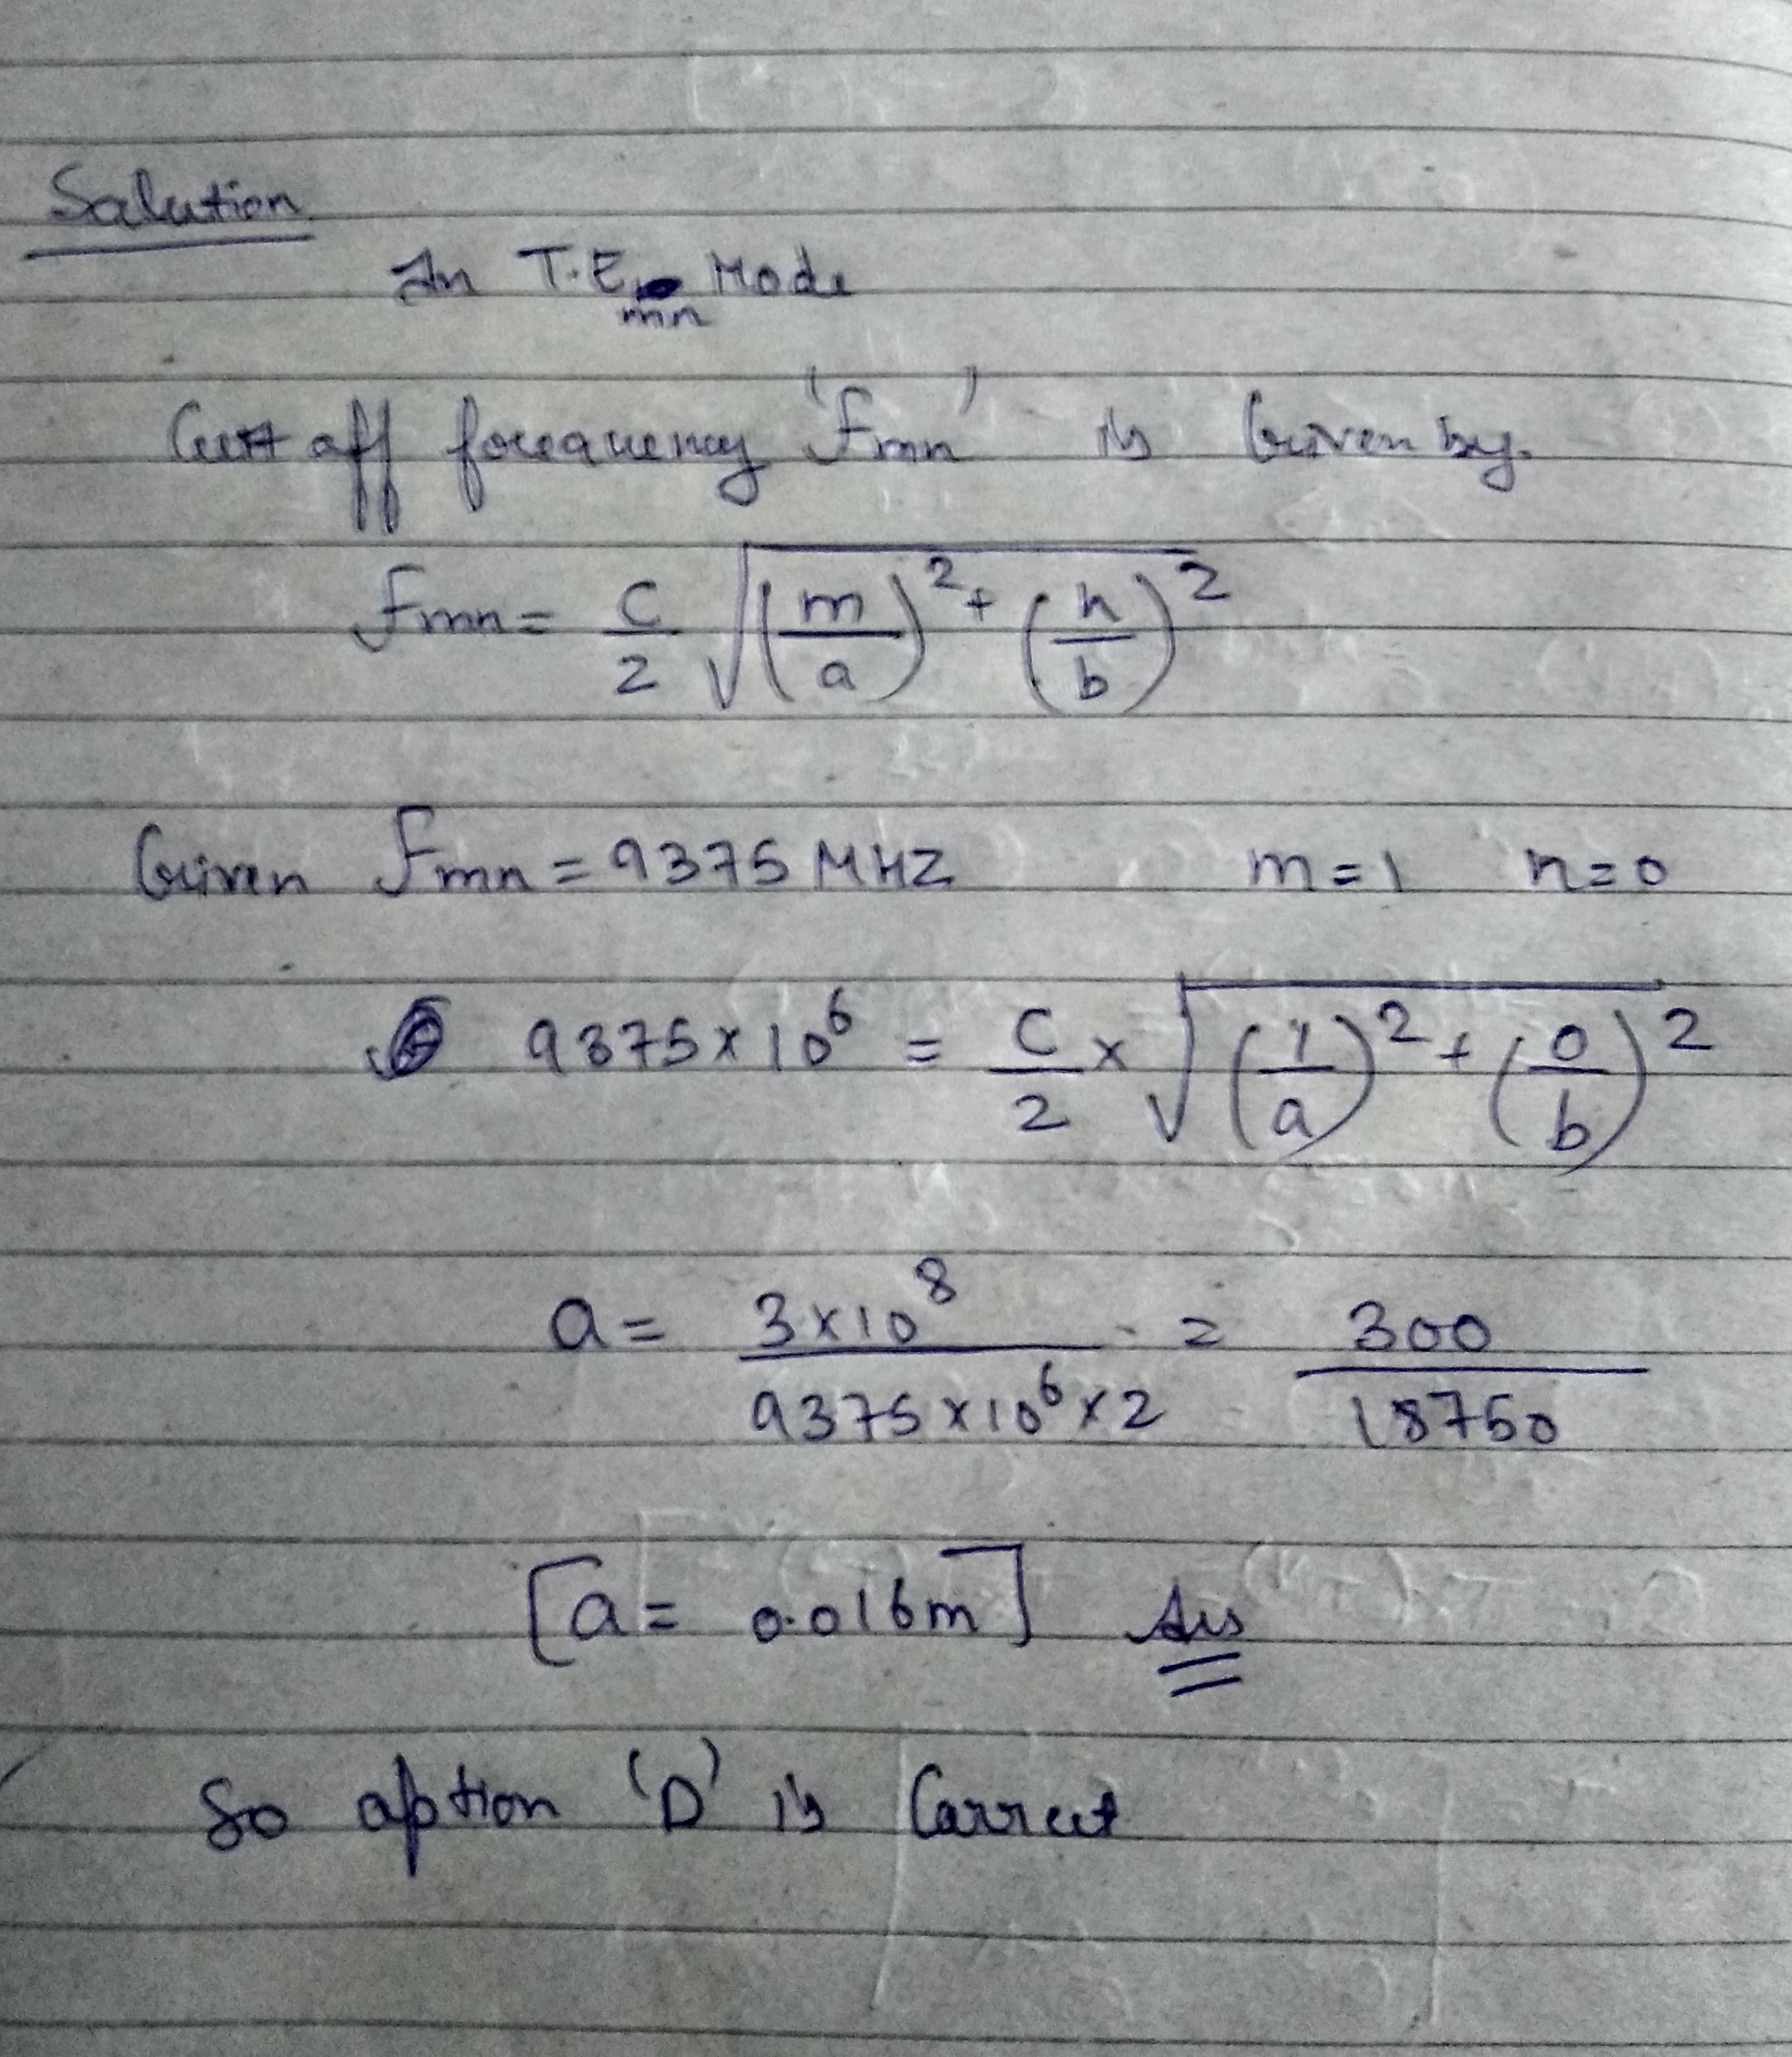 Solution
In T.E mn Mode
Cut off frequency 'fmn' is Given by.
fmn = C/2 √((m/a)² + (n/b)²)
Given fmn = 9375 MHZ m=1 n=0
9375×10⁶ = C/2 × √((1/a)² + (0/b)²)
a = 3×10⁸ / 9375×10⁶×2 = 300 / 18750
[a = 0.016m] Ans
So option 'D' is Correct